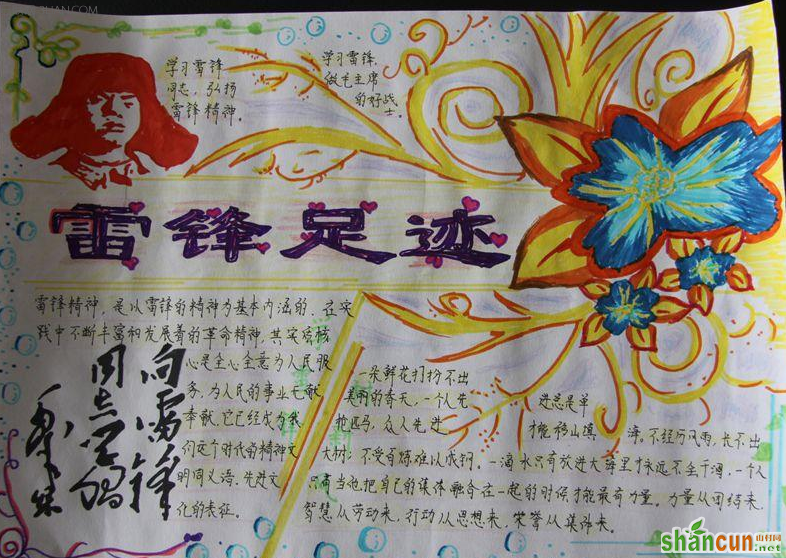 学习雷锋
同志，弘扬
雷锋精神。
学习雷锋，
做毛主席
的好战
士。
雷锋足迹
雷锋精神，是以雷锋的精神为基本内涵的，在实
践中不断丰富和发展着的革命精神，其实质核
心是全心全意为人民服
务，为人民的事业无私
奉献，它已经成为我
们这个时代的精神文
明同义语，先进文
化的表征。
向雷锋
同志学习
毛泽东
一朵鲜花打扮不出
美丽的春天，一个人先
进总是单
枪匹马，众人先进
才能移山填
海。不经历风雨，长不出
大树；不受百炼难以成钢。一滴水只有放进大海里才永远不会干涸，一个人
只有当他把自己的集体融合在一起的时候才能最有力量。力量从团结来，
智慧从劳动来，行动从思想来，荣誉从集体来。
shancun
山村网
.net